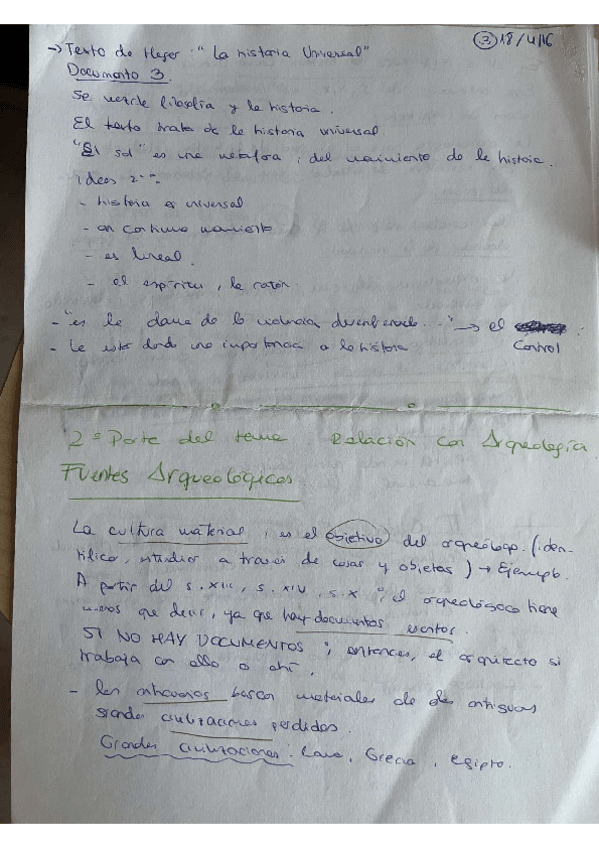 ③ 18/4/16
→ Texto de Heger "La historia Universal"
Documento 3.
Se mezcle filosofía y la historia.
El texto trata de le historia universal
"El sol" es une metafora, del nacimiento de le historia.
ideas
- historia es universal
- en continuo movimiento
- es lineal.
- el espiritu, la razón.
- "es le de la desenfrenada.." → el Control
- Le esta dando una importancia a la historia
2º Parte del tema Relación con Arqueología
Fuentes Arqueológicas
La cultura material, es el objetivo del arqueólogo. (iden-
tifico, a traves de cosas y objetos) → Ejemplo.
A partir del s.XIII, s.XIV, s.X el arqueológoco tiene
menos que decir, ya que hay documentos escritos.
SI NO HAY DOCUMENTOS; entonces, el si
trabaja con ello o ahí.
- los buscan materiales de las antiguas
grandes civilizaciones perdidas.
Grandes civilizaciones. , Grecia, egipto.